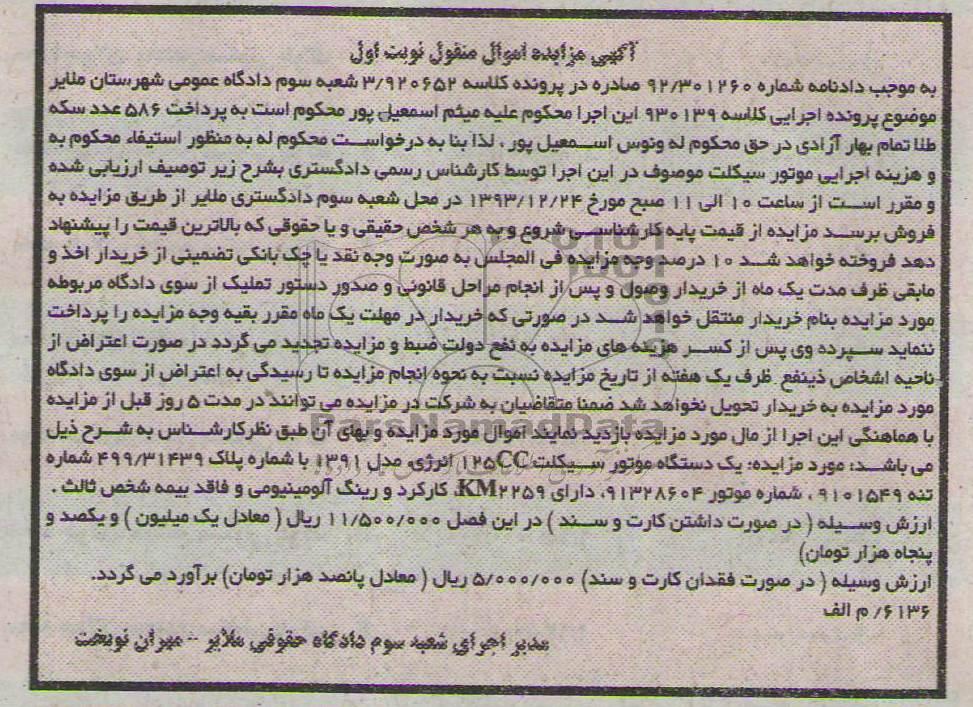 آگهی مزایده اموال منقول نوبت اول
به موجب دادنامه شماره ۹۲/۳۰۱۲۶۰ صادره در پرونده کلاسه ۳/۹۲۰۶۵۲ شعبه سوم دادگاه عمومی شهرستان ملایر
موضوع پرونده اجرایی کلاسه ۹۳۰۱۳۹ این اجرا محکوم علیه میثم اسمعیل پور محکوم است به پرداخت ۵۸۶ عدد سکه
طلا تمام بهار آزادی در حق محکوم له ونوس اسمعیل پور ، لذا بنا به درخواست محکوم له به منظور استیفاء محکوم به
و هزینه اجرایی موتور سیکلت موصوف در این اجرا توسط کارشناس رسمی دادگستری بشرح زیر توصیف ارزیابی شده
و مقرر است از ساعت ۱۰ الی ۱۱ صبح مورخ ۱۳۹۳/۱۲/۲۴ در محل شعبه سوم دادگستری ملایر از طریق مزایده به
فروش برسد مزایده از قیمت پایه کارشناسی شروع و به هر شخص حقیقی و یا حقوقی که بالاترین قیمت را پیشنهاد
دهد فروخته خواهد شد ۱۰ درصد وجه مزایده فی المجلس به صورت وجه نقد یا چک بانکی تضمینی از خریدار اخذ و
مابقی ظرف مدت یک ماه از خریدار وصول و پس از انجام مراحل قانونی و صدور دستور تملیک از سوی دادگاه مربوطه
مورد مزایده بنام خریدار منتقل خواهد شد در صورتی که خریدار در مهلت یک ماه مقرر بقیه وجه مزایده را پرداخت
ننماید سپرده وی پس از کسر هزینه های مزایده به نفع دولت ضبط و مزایده تجدید می گردد در صورت اعتراض از
ناحیه اشخاص ذینفع ظرف یک هفته از تاریخ مزایده نسبت به نحوه انجام مزایده تا رسیدگی به اعتراض از سوی دادگاه
مورد مزایده به خریدار تحویل نخواهد شد ضمنا متقاضیان به شرکت در مزایده می توانند در مدت ۵ روز قبل از مزایده
با هماهنگی این اجرا از مال مورد مزایده بازدید نمایند اموال مورد مزایده و بهای آن طبق نظرکارشناس به شرح ذیل
می باشد: مورد مزایده: یک دستگاه موتور سیکلت ۱۲۵CC انرژی، مدل ۱۳۹۱ با شماره پلاک ۴۹۹/۳۱۴۳۹ شماره
تنه ۹۱۰۱۵۴۹ ، شماره موتور ۹۱۳۲۸۶۰۴، دارای KM۲۲۵۹، کارکرد و رینگ آلومینیومی و فاقد بیمه شخص ثالث .
ارزش وسیله ( در صورت داشتن کارت و سند ) در این فصل ۱۱/۵۰۰/۰۰۰ ریال ( معادل یک میلیون ) و یکصد و
پنجاه هزار تومان)
ارزش وسیله ( در صورت فقدان کارت و سند) ۵/۰۰۰/۰۰۰ ریال ( معادل پانصد هزار تومان) برآورد می گردد.
۶۱۳۶/ م الف
مدیر اجرای شعبه سوم دادگاه حقوقی ملایر -- مهران نوبخت
ParsNamadData